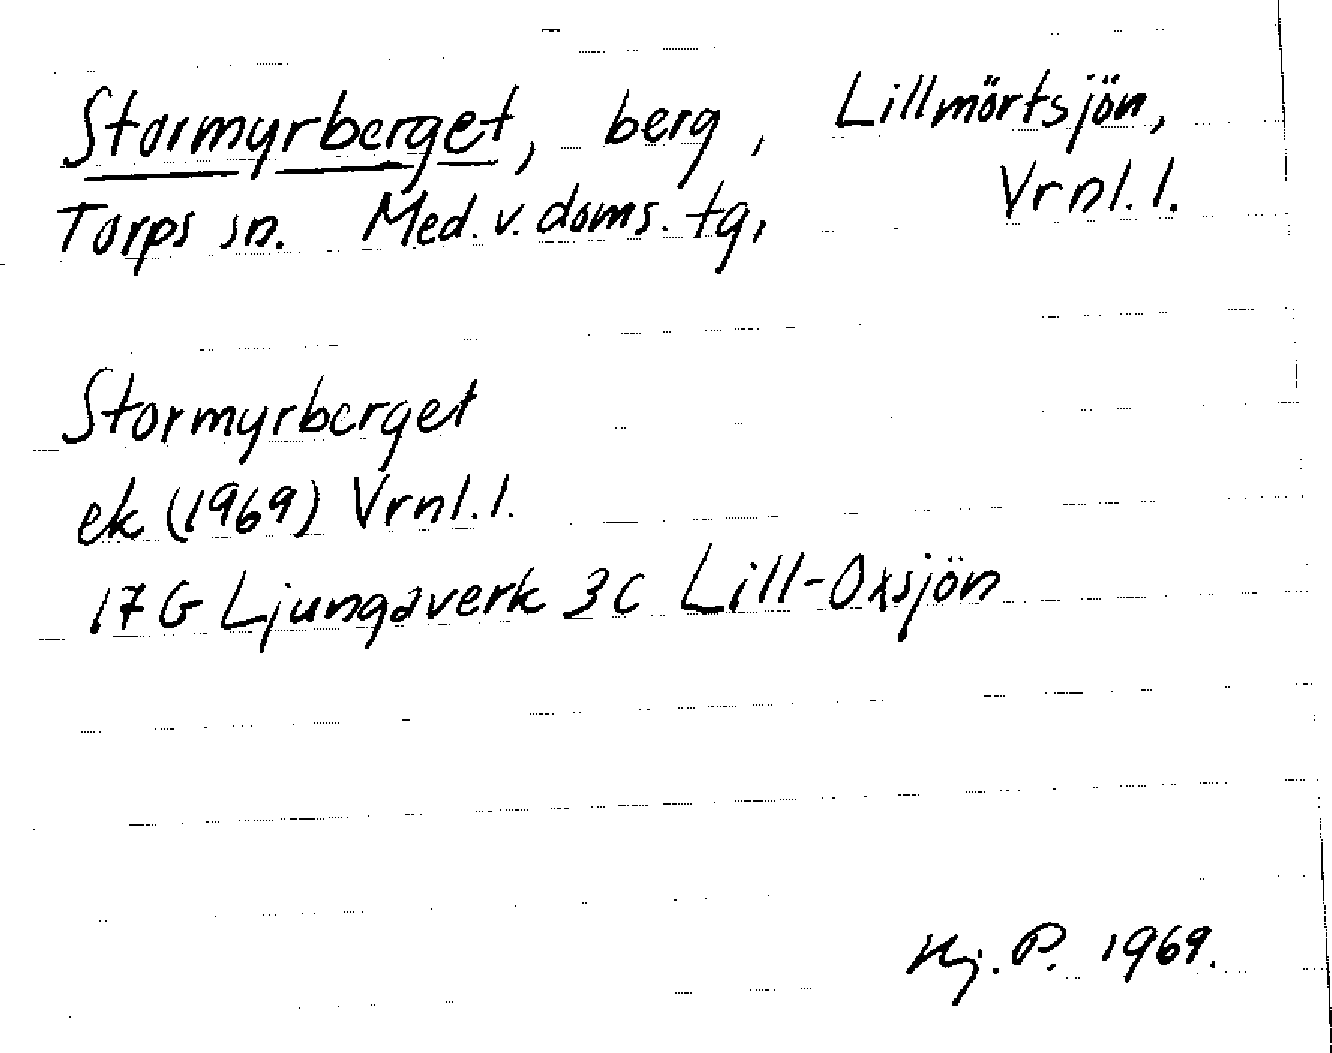 Stormyrberget, berg, Lillmörtsjön,
Torps sn. Med. v. doms. tg, Vrnl. l.
Stormyrberget
ek (1969) Vrnl. l.
17 G Ljungaverk 3c Lill-Oxsjön
Hj. P. 1969.